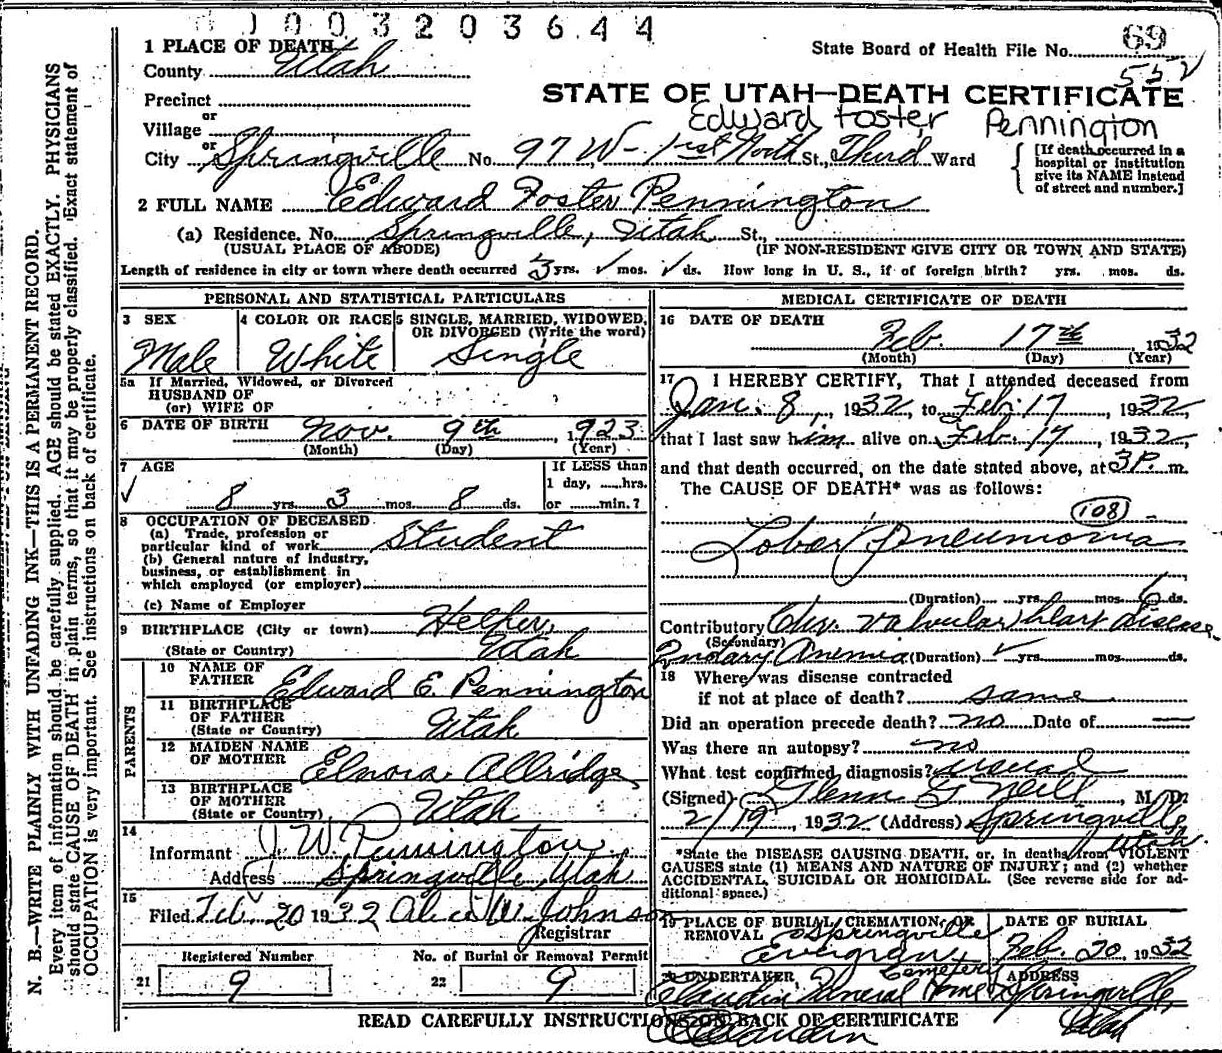 0003203644
1 PLACE OF DEATH
County Utah
State Board of Health File No. 69
552
Precinct
or
Village
or
STATE OF UTAH—DEATH CERTIFICATE
Edward Foster Pennington
City Springville No. 97 W - 1st North St., Third Ward
[If death occurred in a
hospital or institution
give its NAME instead
of street and number.]
2 FULL NAME Edward Foster Pennington
(a) Residence. No. Springville, Utah St.,
(USUAL PLACE OF ABODE) (IF NON-RESIDENT GIVE CITY OR TOWN AND STATE)
Length of residence in city or town where death occurred 3 yrs. ✓ mos. ✓ ds. How long in U. S., if of foreign birth? yrs. mos. ds.
PERSONAL AND STATISTICAL PARTICULARS
3 SEX
Male
4 COLOR OR RACE
White
5 SINGLE, MARRIED, WIDOWED,
OR DIVORCED (Write the word)
Single
5a If Married, Widowed, or Divorced
HUSBAND OF
(or) WIFE OF
6 DATE OF BIRTH Nov. 9th, 1923
(Month) (Day) (Year)
7 AGE
✓ 8 yrs. 3 mos. 8 ds.
If LESS than
1 day, ......hrs.
or ......min.?
8 OCCUPATION OF DECEASED
(a) Trade, profession or
particular kind of work Student
(b) General nature of industry,
business, or establishment in
which employed (or employer)
(c) Name of Employer
9 BIRTHPLACE (City or town) Helper,
(State or Country) Utah
PARENTS
10 NAME OF
FATHER Edward E. Pennington
11 BIRTHPLACE
OF FATHER
(State or Country) Utah
12 MAIDEN NAME
OF MOTHER Elnora Allridge
13 BIRTHPLACE
OF MOTHER
(State or Country) Utah
14
Informant J. W. Pennington
Address Springville, Utah
15
Filed Feb. 20 1932 Alice W. Johnson
Registrar
Registered Number
21 9
No. of Burial or Removal Permit
22 9
MEDICAL CERTIFICATE OF DEATH
16 DATE OF DEATH
Feb. 17th 1932
(Month) (Day) (Year)
17 I HEREBY CERTIFY, That I attended deceased from
Jan. 8, 1932, to Feb. 17, 1932,
that I last saw him alive on Feb. 17, 1932,
and that death occurred, on the date stated above, at 3 P. m.
The CAUSE OF DEATH* was as follows:
108
Lobar Pneumonia
(Duration) yrs. mos. 6 ds.
Contributory Chr. valvular heart disease
(Secondary)
2ndary Anemia (Duration) ✓ yrs. mos. ds.
18 Where was disease contracted
if not at place of death? same
Did an operation precede death? no Date of —
Was there an autopsy? no
What test confirmed diagnosis? usual
(Signed) Glenn G Neill, M. D.
2/19, 1932 (Address) Springville
Utah
*State the DISEASE CAUSING DEATH, or, in deaths from VIOLENT
CAUSES state (1) MEANS AND NATURE OF INJURY; and (2) whether
ACCIDENTAL, SUICIDAL OR HOMICIDAL. (See reverse side for ad-
ditional space.)
19 PLACE OF BURIAL, CREMATION, OR
REMOVAL Springville
Evergreen
Cemetery
DATE OF BURIAL
Feb. 20, 1932
20 UNDERTAKER
Claudin Funeral Home
ADDRESS
Springville,
Utah
Claudin
READ CAREFULLY INSTRUCTIONS ON BACK OF CERTIFICATE
N. B.—WRITE PLAINLY WITH UNFADING INK—THIS IS A PERMANENT RECORD.
Every item of information should be carefully supplied. AGE should be stated EXACTLY. PHYSICIANS
should state CAUSE OF DEATH in plain terms, so that it may be properly classified. Exact statement of
OCCUPATION is very important. See instructions on back of certificate.